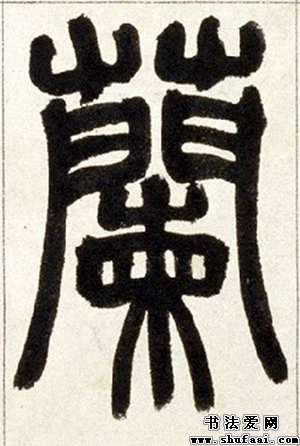 蘭
书法爱网
www.shufaai.com